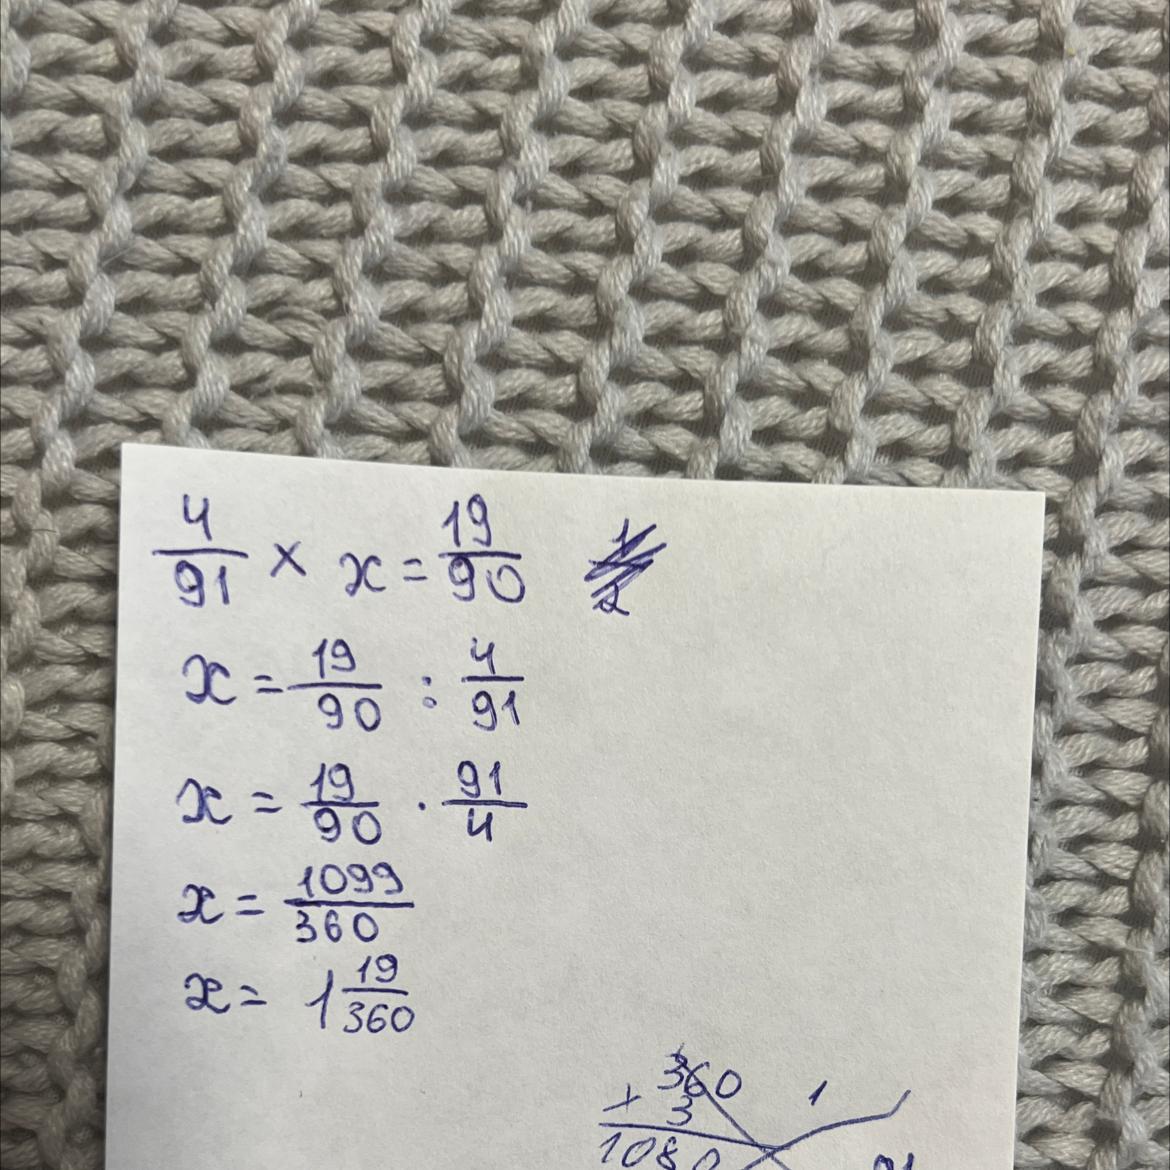 4/91 × x = 19/90
x = 19/90 : 4/91
x = 19/90 · 91/4
x = 1099/360
x = 1 19/360
360 1
+ 3
1080 91